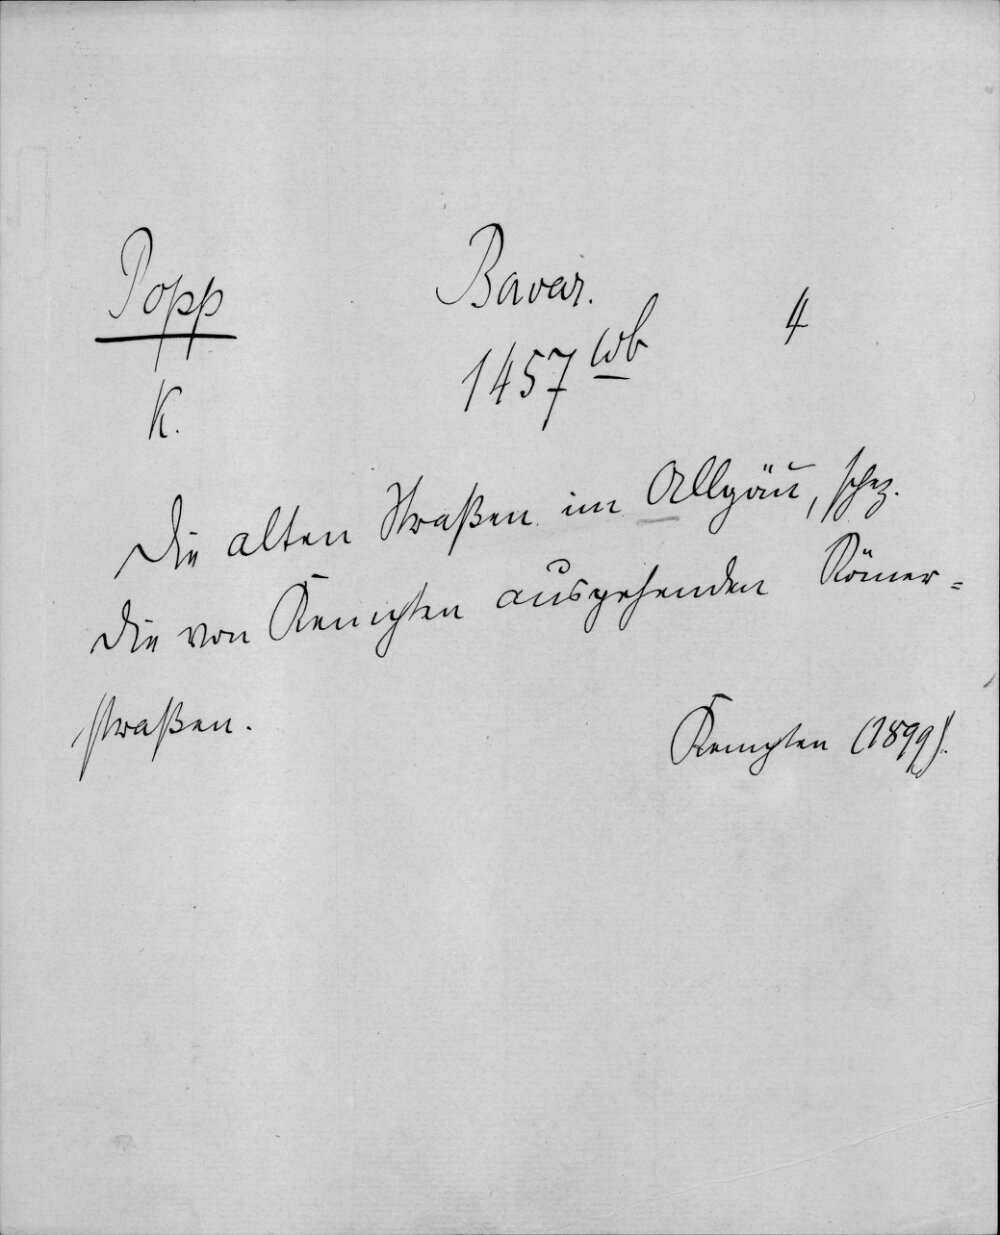 Popp
Bavar.
4
K.
1457 wb
Die alten Straßen im Allgäu, spez.
die von Kempten ausgehenden Römer=
straßen.
Kempten (1899).